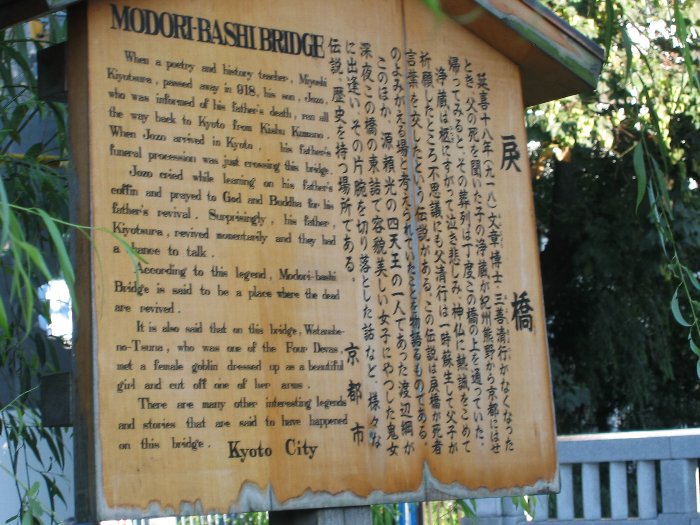 MODORI-BASHI BRIDGE
When a poetry and history teacher, Miyoshi
Kiyotsura, passed away in 918, his son, Jozo,
who was informed of his father's death, ran all
the way back to Kyoto from Kishu Kumano.
When Jozo arrived in Kyoto, his father's
funeral procession was just crossing this bridge.
Jozo cried while leaning on his father's
coffin and prayed to God and Buddha for his
father's revival. Surprisingly, his father,
Kiyotsura, revived momentarily and they had
a chance to talk.
According to this legend, Modori-bashi
Bridge is said to be a place where the dead
are revived.
It is also said that on this bridge, Watanabe-
no-Tsuna, who was one of the Four Devas,
met a female goblin dressed up as a beautiful
girl and cut off one of her arms.
There are many other interesting legends
and stories that are said to have happened
on this bridge.
Kyoto City
戻橋
延喜十八年(九一八)文章博士・三善清行がなくなった
とき、父の死を聞いた子の浄蔵が紀州熊野から京都にはせ
帰ってみると、その葬列は丁度この橋の上を通っていた。
浄蔵は柩にすがって泣き悲しみ、神仏に熱誠をこめて
祈願したところ、不思議にも父清行は一時蘇生して父子が
言葉を交したという伝説がある。この伝説は戻橋が死者
のよみがえる場と考えられていたことを物語るものである。
このほか、源頼光の四天王の一人であった渡辺綱が
深夜この橋の東詰で容貌美しい女子にやつした鬼女
に出逢い、その片腕を切り落とした話など、様々な
伝説、歴史を持つ場所である。
京都市